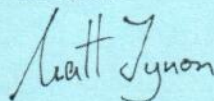 Matt Tynon